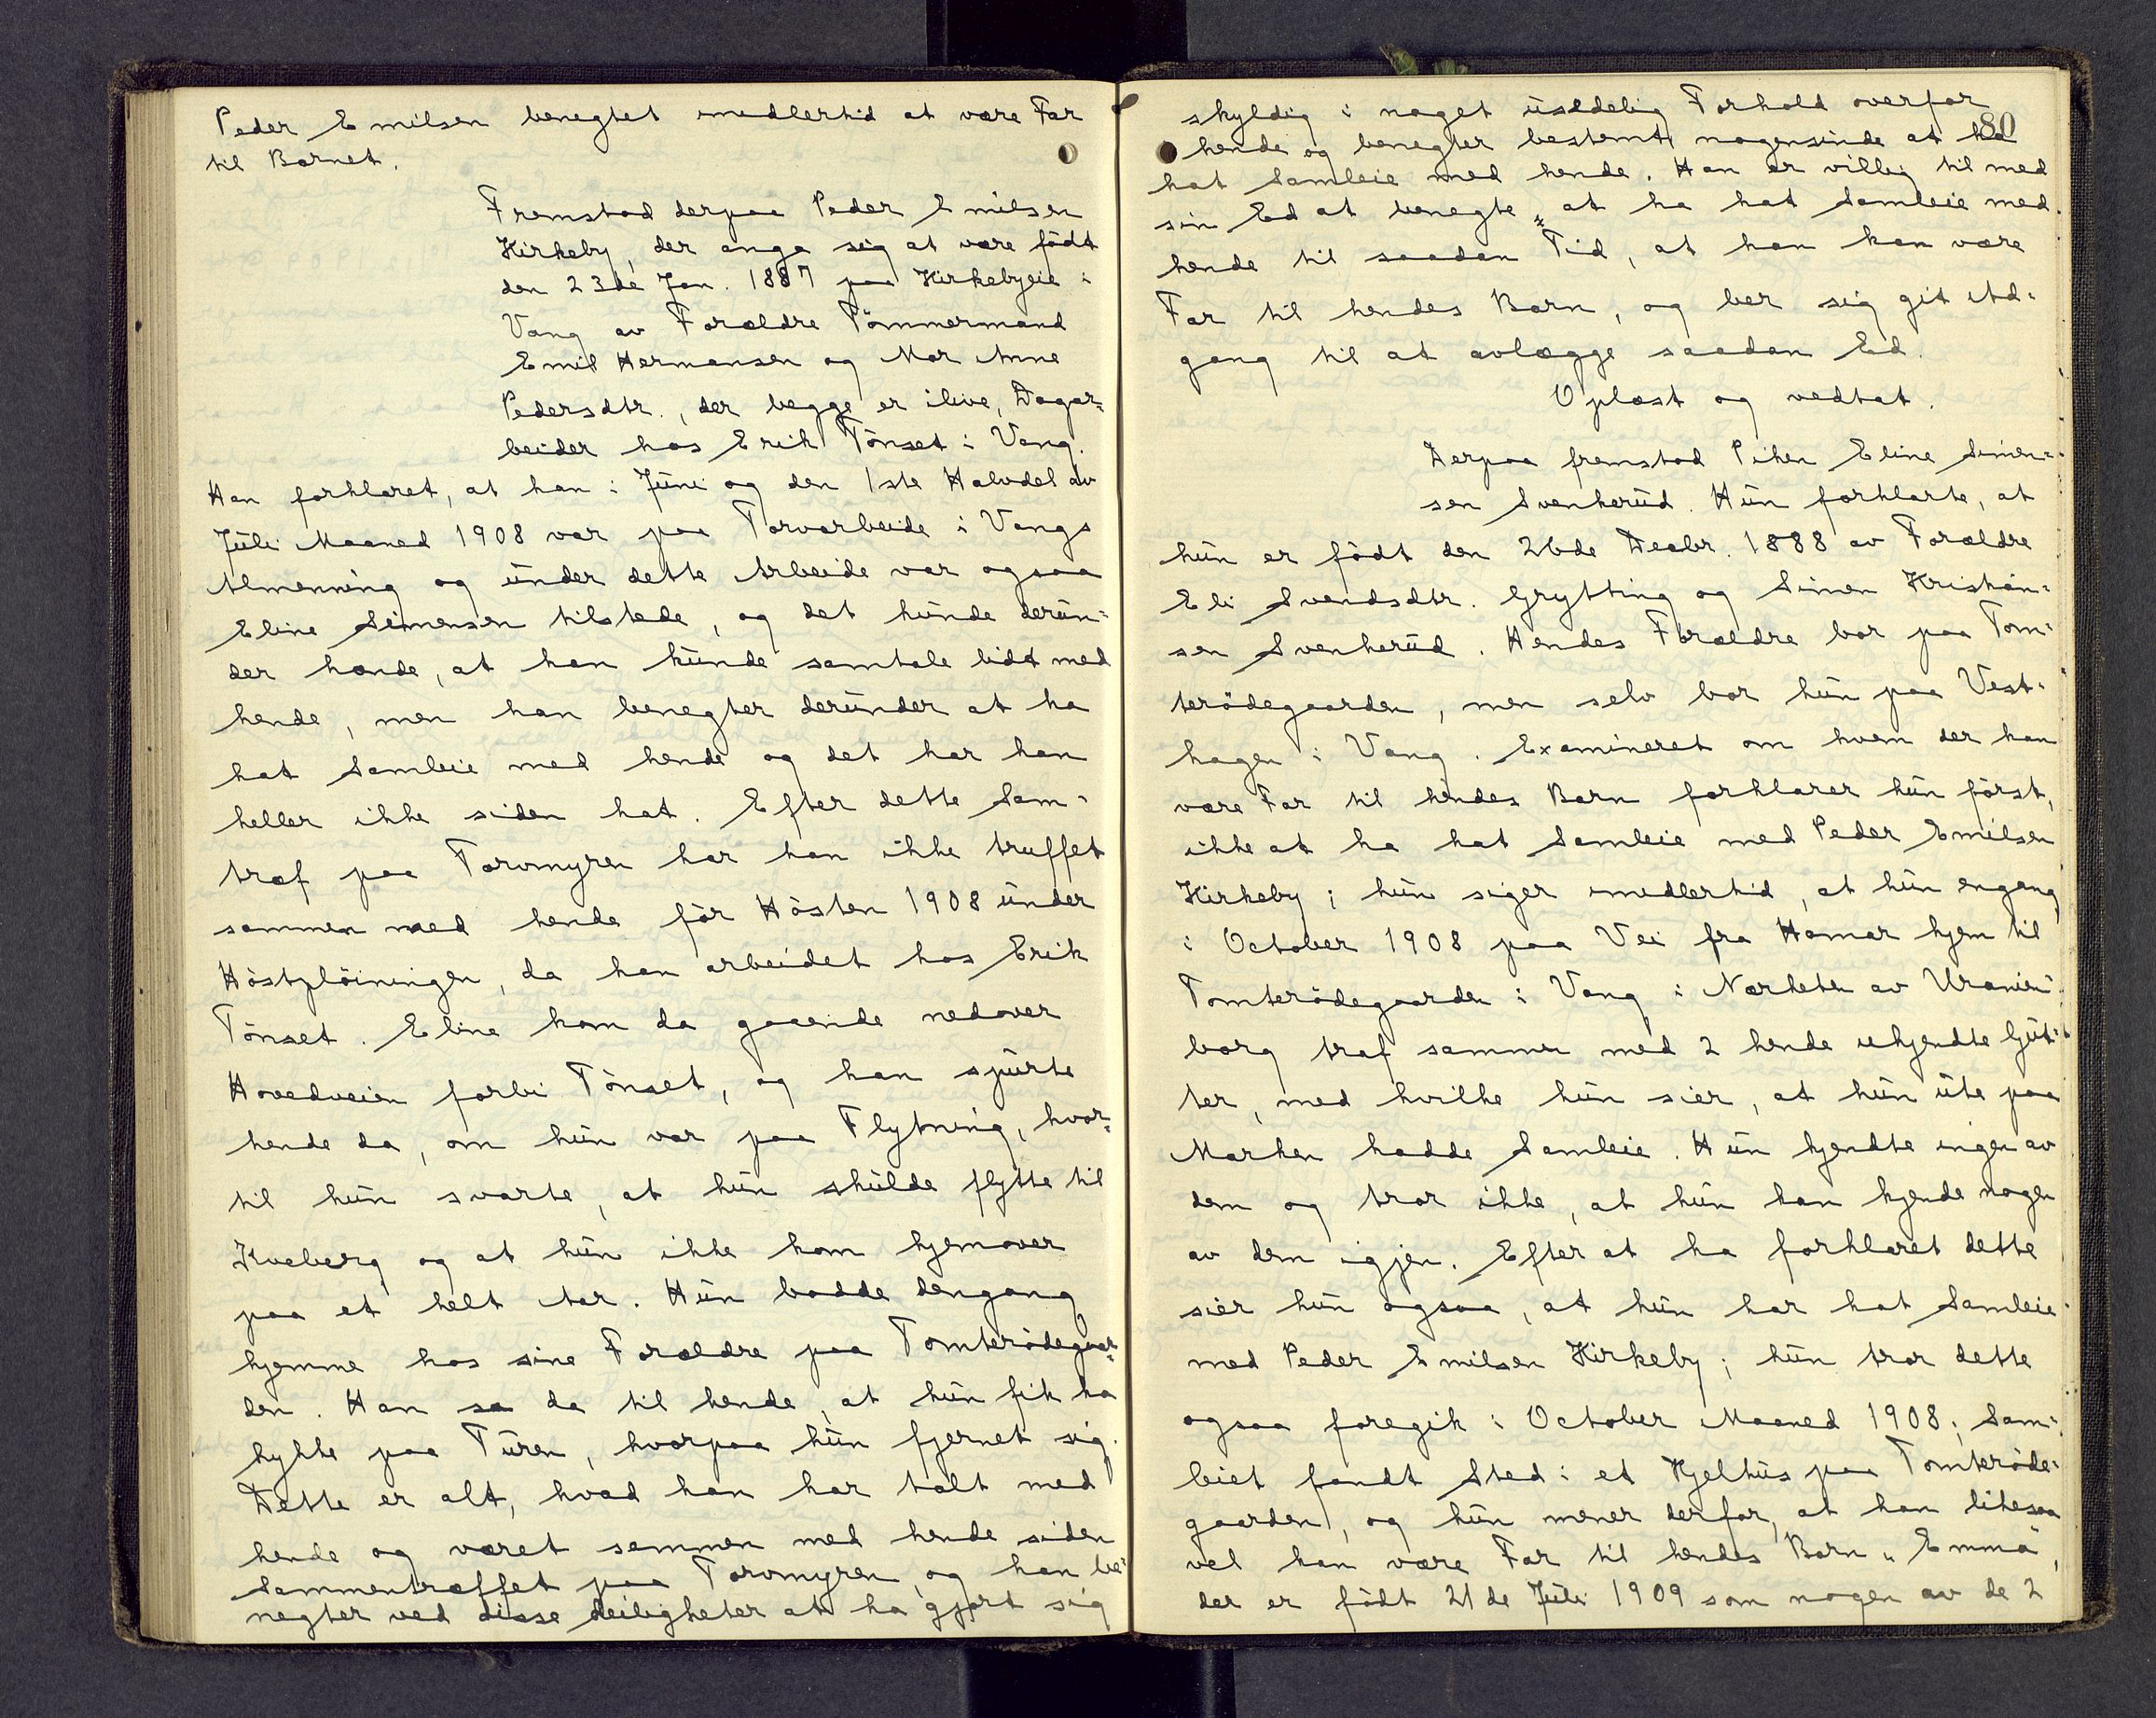 Peder Emilsen benegtet imidlertid at være Far
til Barnet.
Fremstod derpaa Peder Emilsen
Kirkeby, der anga sig at være födt
den 23de Jan. 1887 paa Kirkebyeie i
Vang av Forældre Tömmermand
Emil Hermansen og Mor Anne
Pedersdtr., der begge er ilive, Dagar=
beider hos Erik Tönset i Vang.
Han forklaret, at han i Jüni og den 1ste Halvdel av
Jüli Maaned 1908 var paa Torvarbeide i Vangs
Almenning og ünder dette Arbeide var ogsaa
Eline Simensen tilstede, og det künde derün=
der hænde, at han künde samtale lidt med
hende, men han benegter deründer at ha
hat Samleie med hende og det har han
heller ikke siden hat. Efter dette Sam=
træf paa Torvmyren har han ikke truffet
sammen med hende för Hösten 1908 ünder
Höstplöiningen, da han arbeidet hos Erik
Tönset. Eline kom da gaaende nedover
Hovedveien forbi Tönset, og han spürte
hende da, om hün var paa Flytning, hvor=
til hün svarte, at hün skülde flytte til
Kveberg og at hün ikke kom hjemover
paa et helt Aar. Hün bodde dengang
hjemme hos sine Forældre paa Tomterödegaar=
den. Han sa da til hende, at hün fik ha
lykke paa Türen, hvorpaa hün fjernet sig.
Dette er alt, hvad han har talt med
hende og været sammen med hende siden
Sammentræffet paa Torvmyren, og han be=
negter ved disse Leiligheter at ha gjort sig
80
skyldig i noget üsædelig Forhold overfor
hende og benegter bestemt nogensinde at ha
hat Samleie med hende. Han er villig til med
sin Ed at benegte „at ha hat Samleie med
hende til saadan Tid, at han kan være
Far til hendes Barn, og ber sig git Ad=
gang til at avlægge saadan Ed.
Oplæst og vedtat.
Derpaa fremstod Piken Eline Simen=
sen Svenkerüd. Hün forklarte, at
hün er födt den 26de Decbr. 1888 av Forældre
Eli Svendsdtr. Grytting og Simen Kristian=
sen Svenkerüd. Hendes Forældre bor paa Tom=
terödegaarden, men selv bor hün paa Vest=
hagen i Vang. Examineret om hvem der kan
være Far til hendes Barn forklarer hün först,
ikke at ha hat Samleie med Peder Emilsen
Kirkeby; hün siger imidlertid, at hün engang
i October 1908 paa Vei fra Hamar hjem til
Tomterödegaarden i Vang i Nærheten av Uranien=
borg traf sammen med 2 hende ukjendte Gjüt=
ter, med hvilke hün sier, at hün üte paa
Marken hadde Samleie. Hün kjendte ingen av
dem og tror ikke, at hün kan kjende nogen
av dem igjen. Efter at ha forklaret dette
sier hün ogsaa, at hün har hat Samleie
med Peder Emilsen Kirkeby; hün tror dette
ogsaa foregik i October Maaned 1908; Sam=
leiet fandt Sted i et Kjelhüs paa Tomteröde=
gaarden, og hün mener derfor, at han likesaa
vel kan være Far til hendes Barn „Emma",
der er födt 21de Jüli 1909 som nogen av de 2